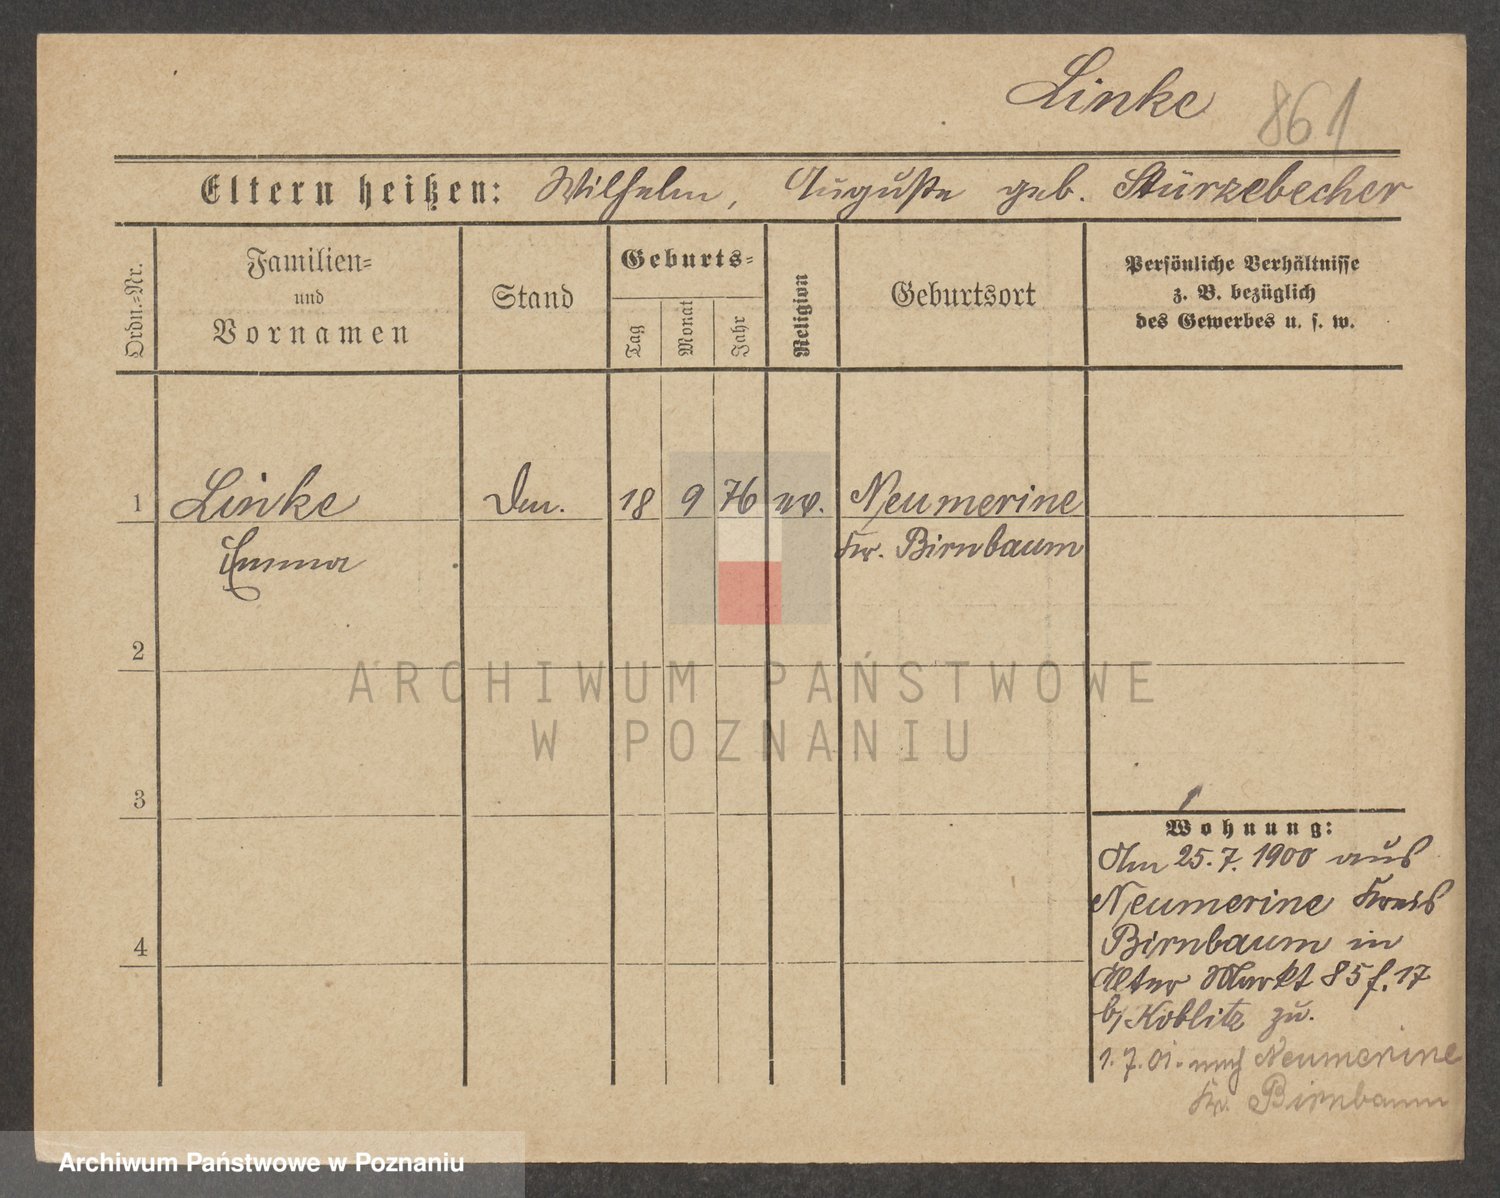 Linke 861
Eltern heißen: Wilhelm, Auguste geb. Stürzebecher
Ordn.-Nr.
Familien-
und
Vornamen
Stand
Geburts-
Tag
Monat
Jahr
Religion
Geburtsort
Persönliche Verhältnisse
z. B. bezüglich
des Gewerbes u. s. w.
1 Linke 18 9 76 ev. Neumerine
Emma Kr. Birnbaum
2
3
4
Wohnung:
Am 25.7.1900 aus
Neumerine Kreis
Birnbaum in
Alter Markt 85 17
b/ Koblitz zu.
1.7.01. nach Neumerine
Kr. Birnbaum
ARCHIWUM PAŃSTWOWE
W POZNANIU
Archiwum Państwowe w Poznaniu